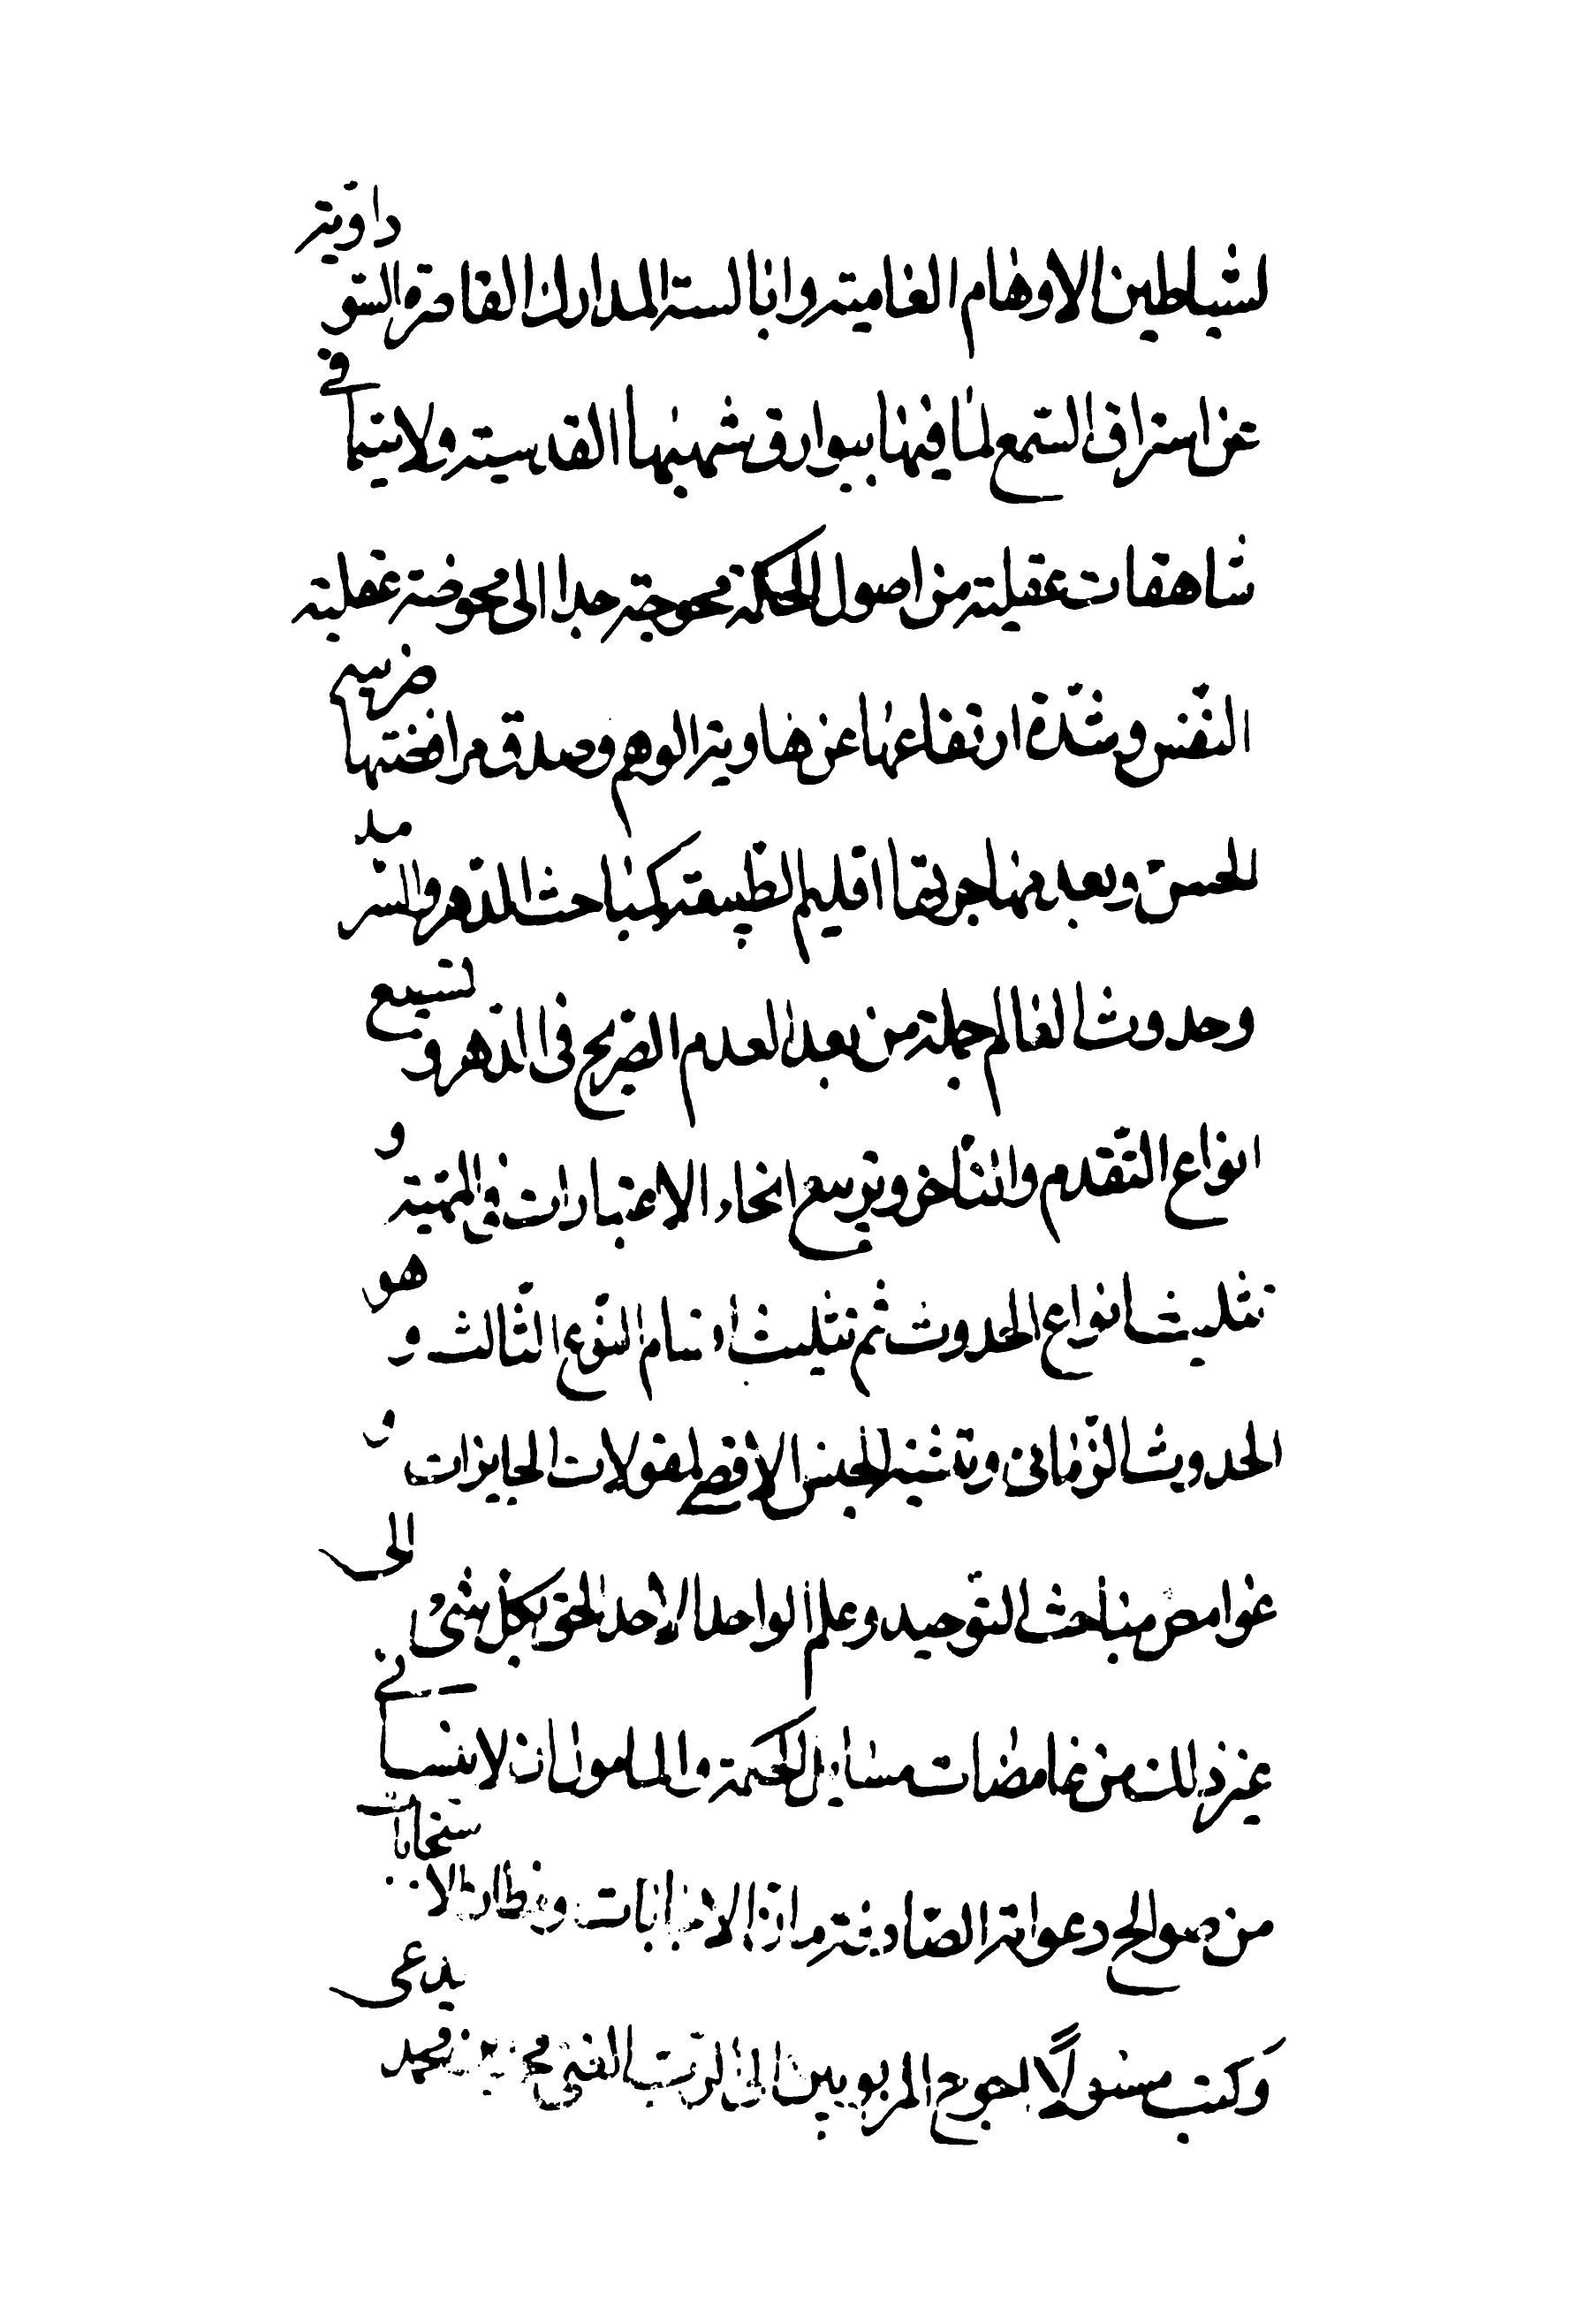 لشياطين الاوهام العامية وابالسة المدارك القاصرة السوداوية
عن استراق السمع لما فيها ببوارق شهبها القدسية ولا سيما في
شاهقات عقلية من اصول الحكمة محوجة جدا الى محوضة عقلية
النفس وشدة ارتفاعها عن هاوية الوهم وصدق مرافضتها
الحس وبعد مهاجرتها اقليم الطبيعة كمباحث الدهر والسرمد
وحدوث العالم جملة من بعد العدم الصريح في الدهر وتسبيع
انواع التقدم والتأخر وتربيع انحاء الاعتبارات في المهية و
تثليث انواع الحدوث ثم تثليث اقسام النوع الثالث وهو
الحدوث الزماني وتثنية الجنس الاقصى لمقولات الجايزات و
غوامض مباحث التوحيد وعلم الواحد الاحد الحق بكل شئ الى
غير ذلك من غامضات مسايل الحكمة والمامول ان لا ينساني
من صوالح دعواته الصادفة مأن الاجابات ومظان الاستجابات
وكتب مسئولا احوج المربوبين الى الرب الغني محمد بن محمد يدعى